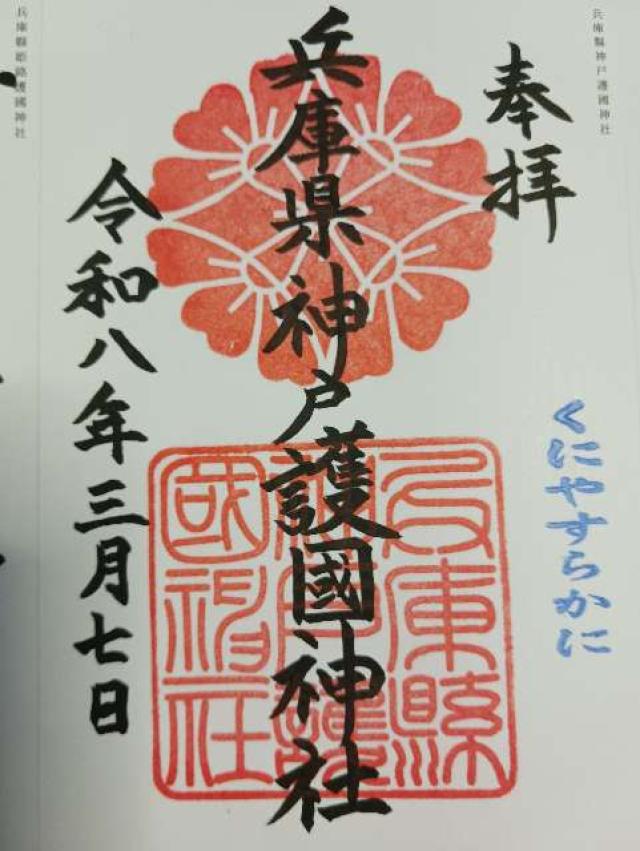 兵庫縣神戸護國神社
奉拝
くにやすらかに
兵庫県神戸護國神社
兵庫縣神戸護國神社
令和八年三月七日
兵庫縣姫路護國神社